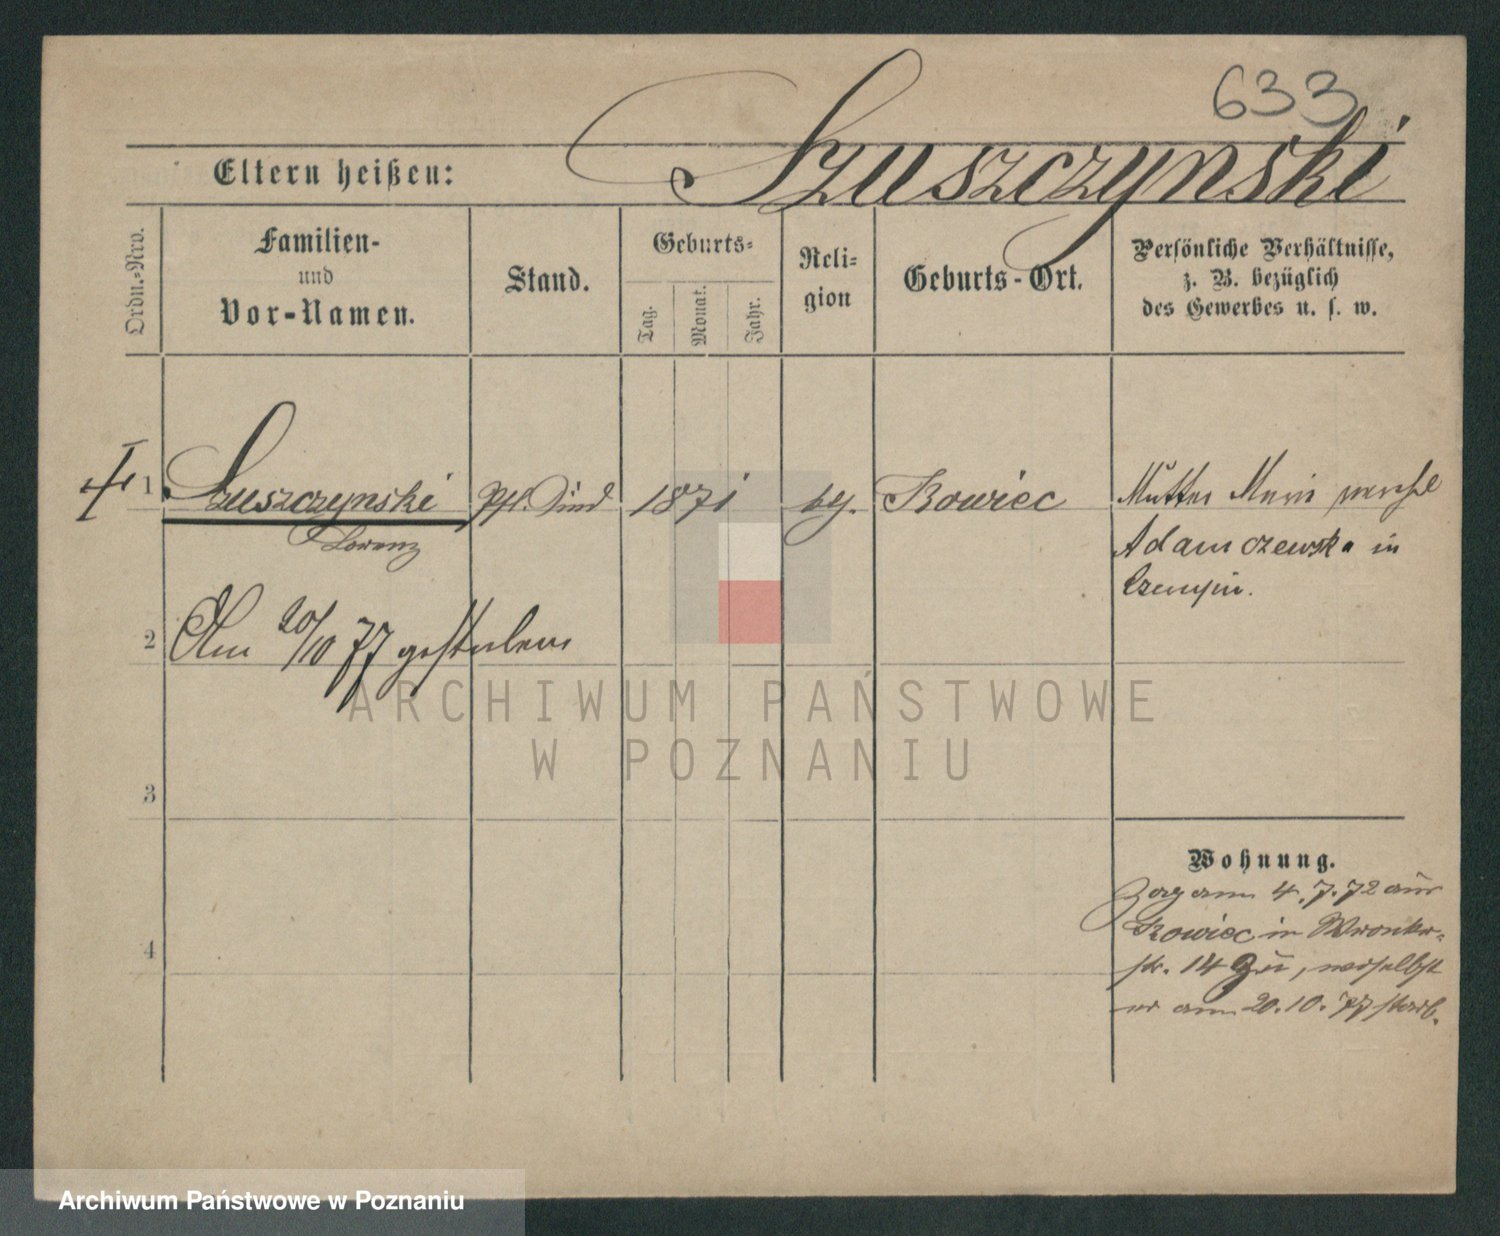 633
Eltern heißen: Szuszczynski
Ordn.-Nro.
Familien-
und
Vor-Namen.
Stand.
Geburts-
Tag.
Monat.
Jahr.
Reli-
gion
Geburts-Ort.
Persönliche Verhältnisse,
z. B. bezüglich
des Gewerbes u. s. w.
1 Szuszczynski Pfl. Kind 1871 Kowiec Mutter Marie
Lorenz
Adamczewska in
Czempin.
2 Am 20/10 77 gestorben
3
4
Wohnung.
Zog am 4.7.72 aus
Kowiec in Wronker-
str. 14 zu, woselbst
er am 20.10.77 starb.
ARCHIWUM PAŃSTWOWE
W POZNANIU
Archiwum Państwowe w Poznaniu